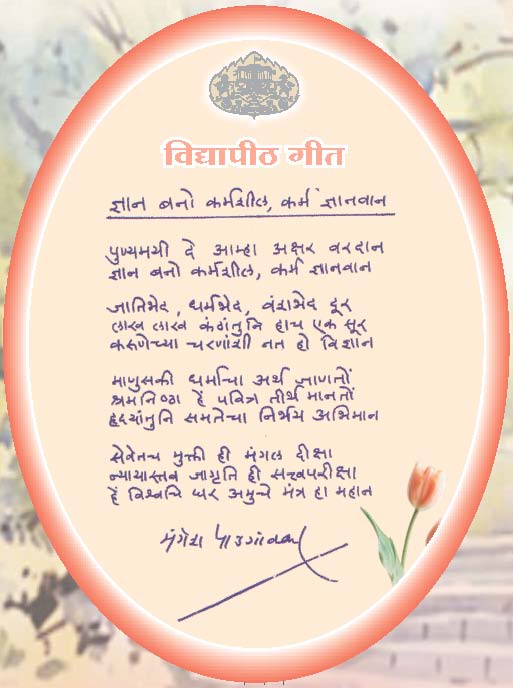 विद्यापीठ गीत
ज्ञान बनो कर्मशील, कर्म ज्ञानवान
पुण्यमयी दे आम्हा अक्षर वरदान
ज्ञान बनो कर्मशील, कर्म ज्ञानवान
जातिभेद, धर्मभेद, वंशभेद दूर
लाख लाख कंठांतुनि हाच एक सूर
करुणेच्या चरणांशी नत हो विज्ञान
माणुसकी धर्माचा अर्थ जाणतों
श्रमनिष्ठा हें पवित्र तीर्थ मानतों
हृदयांतुनि समतेचा निर्भय अभिमान
सेवेतच मुक्ती ही मंगल दीक्षा
न्यायास्तव जागृति ही सत्त्वपरीक्षा
हें विश्वचि घर अमुचे मंत्र हा महान
मंगेश पाडगांवकर